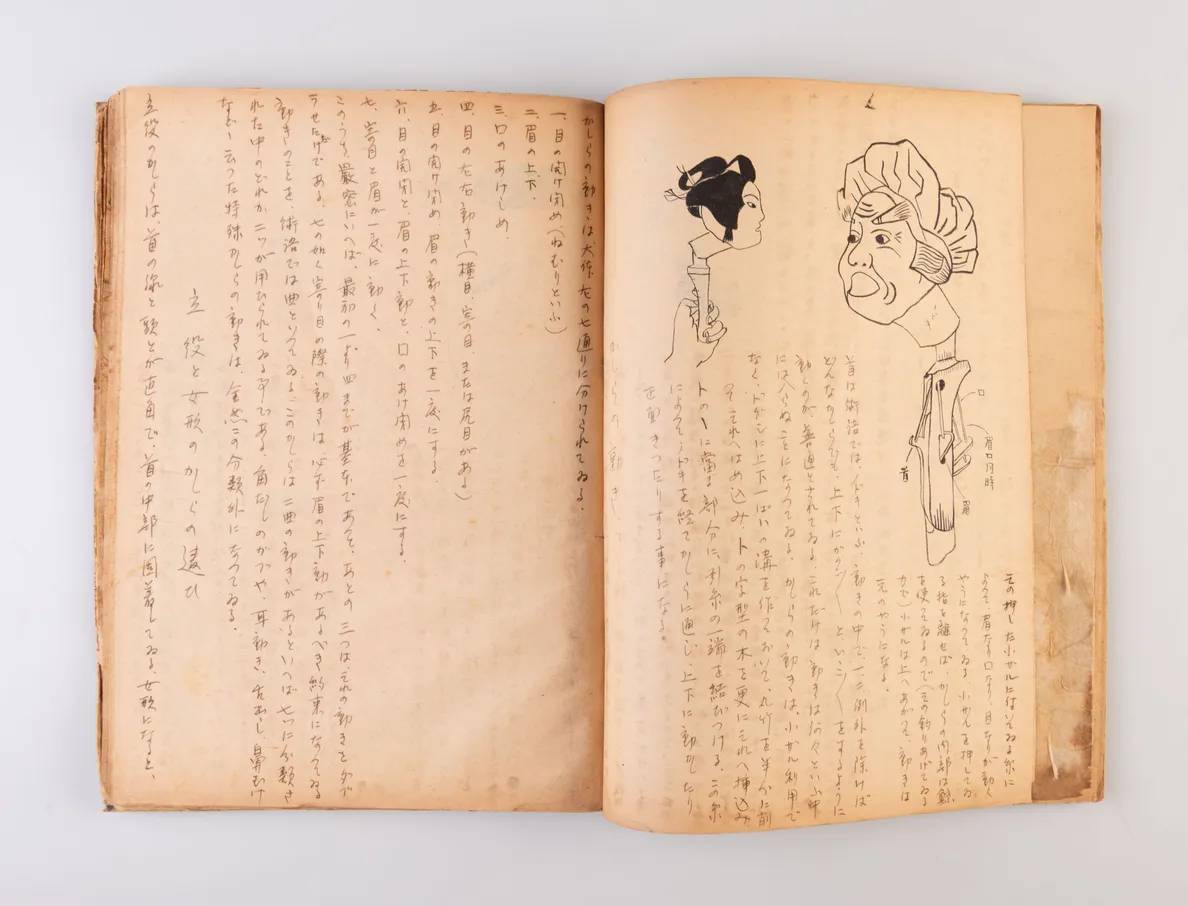 その押した小ザルに付いてゐる糸に
よつて、眉なり口なり、目なりが動く
やうになつてゐる。小ザルを押してゐ
る指を離せば、かしらの内部は鯨
を使つてゐるので(その釣りあげてゐる
力で)小ザルは上へあがつて、動きは
元のやうになる。
口
眉口同時
眉
首
首は術語では、ノドキといふ。動きの中で、一二例外を除けば
どんなかしらでも、上下にガクン〳〵といふ〳〵をするように
動くのが、普通とされてゐる。これだけは動きは何々といふ中
には入らぬことになつてゐる。かしらの動きは小ザル利用で
なく、ドグシに上下一ぱいの溝を作つておいて、丸竹を半分に割
つてこれへはめ込み、トの字型の木を更にそれへ挿込み
トの丶に當る部分に、引糸の一端を結びつける。この糸
によつてノドキを経てかしらに通じ、上下に動かしたり
正動きつたりする事になる。
かしらの動き
かしらの動きは、大体左の七通りに分けられてゐる。
一、目の開け閉め(ねむりといふ)
二、眉の上下。
三、口のあけしめ。
四、目の左右動き(横目、寄り目、または尻目がある)
五、目の開け閉め、眉の動きの上下を一度にする。
六、目の開閉と、眉の上下動と、口のあけ閉めを一度にする。
七、寄り目と眉が一度に動く。
このうち、嚴密にいへば、最初の一より四までが基本であつて、あとの三つは、それの動きをダブ
らせただけである。七の如く寄り目の際の動きは、必ず眉の上下動があるべき約束になつてゐる
動きのことを、術語では曲といつてゐる。このかしらは二曲の動きがあるといへば七ツに分類さ
れた中のどれか二ツが用ひられてゐる事である。角だしのガブや、耳動き、舌出し、鼻むけ
など〻云つた特殊かしらの動きは、全然この分類外になつてゐる。
立役と女形のかしらの違ひ
立役のかしらは、首の線と頭とが直角で、首の中部に固着してゐる。女形になると、